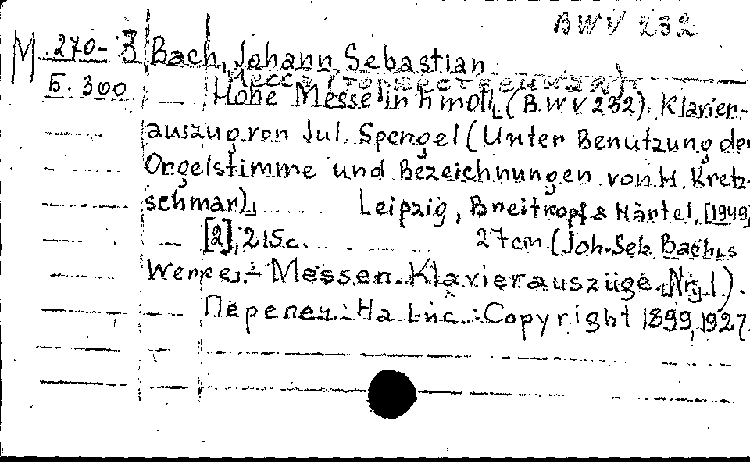 BWV 232
М.270-3 Bach, Johann Sebastian
Б.300 Месса (торжественная).
Hohe Messe in h moll, (BWV 232). Klavier-
auszug von Jul. Spengel (Unter Benutzung der
Orgelstimme und Bezeichnungen von H. Kretz-
schmar).
Leipzig, Breitkopf & Härtel, [1949]
[2], 215 с. 27 cm (Joh. Seb. Bach,s
Werke. - Messen. Klavierauszüge, Nr 1).
Перепеч. На Luc.: Copyright 1899, 1927.